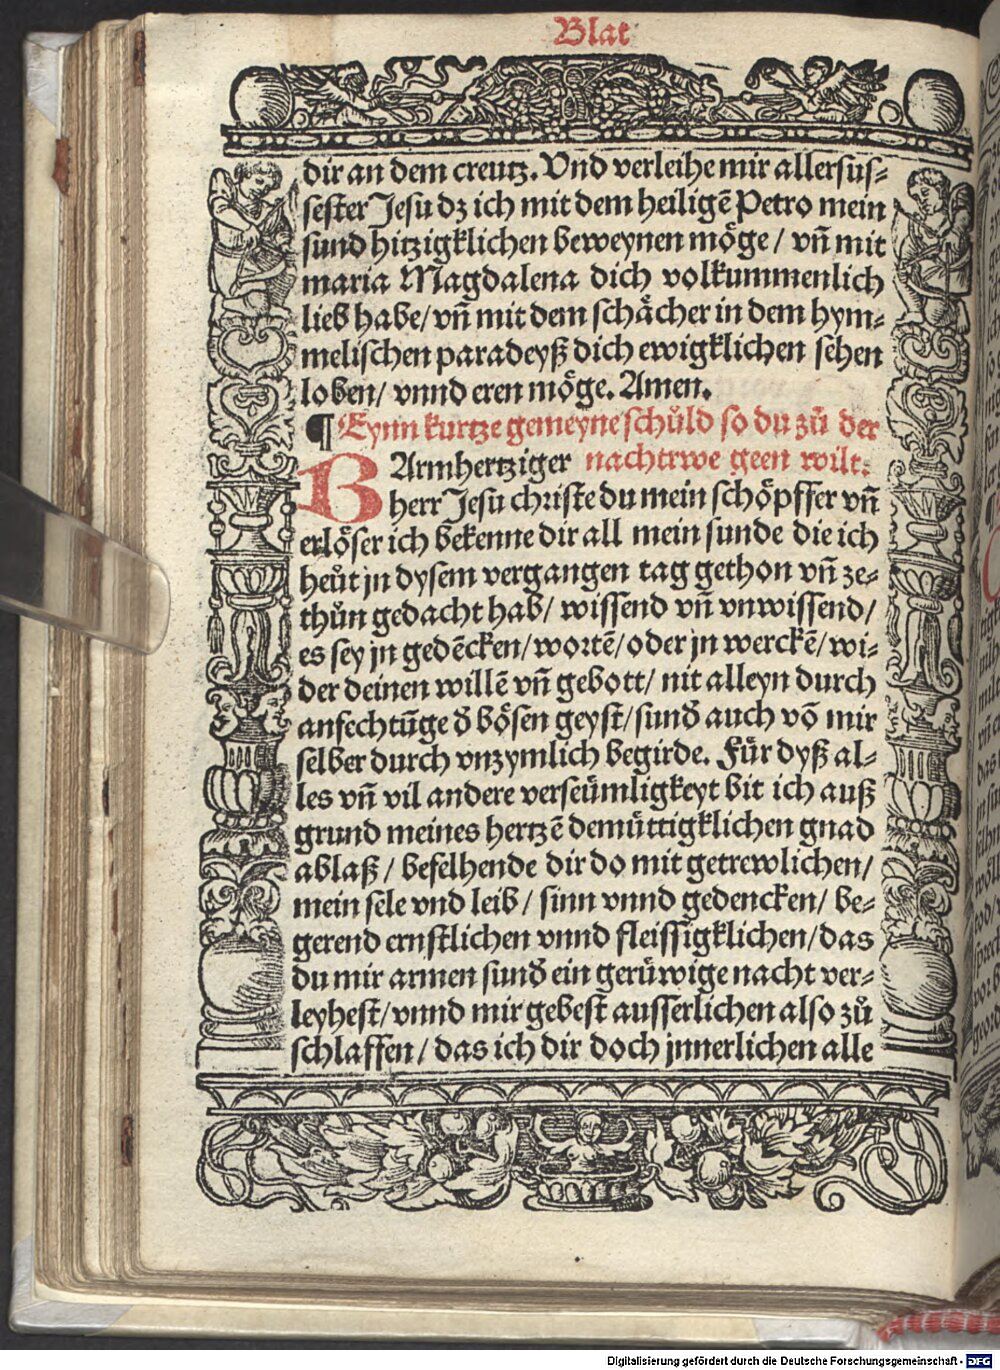 Blat
dir an dem creutz. Vnd verleihe mir allersus-
sester Jesu dz ich mit dem heiligē Petro mein
sund hitzigklichen beweynen möge / vñ mit
maria Magdalena dich volkummenlich
lieb habe / vñ mit dem schächer in dem hym-
melischen paradeyß dich ewigklichen sehen
loben / vnnd eren möge. Amen.
¶ Eynn kurtze gemeyne schuͦld so du zuͦ der
nachtrwe geen wilt.
BArmhertziger
herr Jesu christe du mein schöpffer vñ
erlöser ich bekenne dir all mein sunde die ich
heüt jn dysem vergangen tag gethon vñ ze-
thuͦn gedacht hab / wissend vñ vnwissend /
es sey jn gedēcken / wortē / oder jn werckē / wi-
der deinen willē vñ gebott / nit alleyn durch
anfechtūge d̕ bösen geyst / sund̕ auch vō mir
selber durch vnzymlich begirde. Für dyß al-
les vñ vil andere verseümligkeyt bit ich auß
grund meines hertzē demüttigklichen gnad
ablaß / befelhende dir do mit getrewlichen /
mein sele vnd leib / sinn vnnd gedencken / be-
gerend ernstlichen vnnd fleissigklichen / das
du mir armen sund̕ ein gerüwige nacht ver-
leyhest / vnnd mir gebest ausserlichen also zuͦ
schlaffen / das ich dir doch jnnerlichen alle
Digitalisierung gefördert durch die Deutsche Forschungsgemeinschaft - DFG